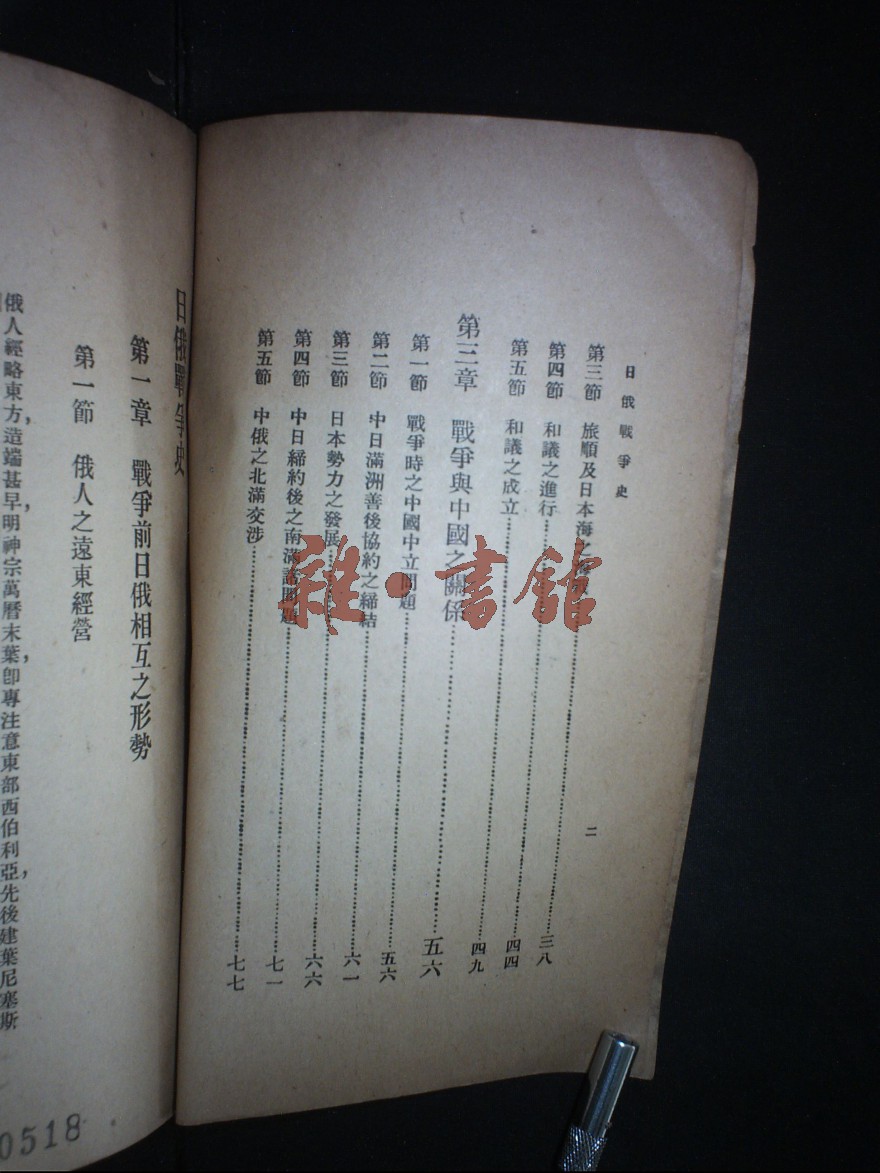 日俄戰爭史
二
第三節 旅順及日本海之……三八
第四節 和議之進行……四四
第五節 和議之成立……四九
第三章 戰爭與中國之關係……五六
第一節 戰爭時之中國中立問題……五六
第二節 中日滿洲善後協約之締結……六一
第三節 日本勢力之發展……六六
第四節 中日締約後之南滿諸問題……七一
第五節 中俄之北滿交涉……七七
日俄戰爭史
第一章 戰爭前日俄相互之形勢
第一節 俄人之遠東經營
俄人經略東方,造端甚早,明神宗萬曆末葉,卽專注意東部西伯利亞,先後建葉尼塞斯
0518
雜·書館